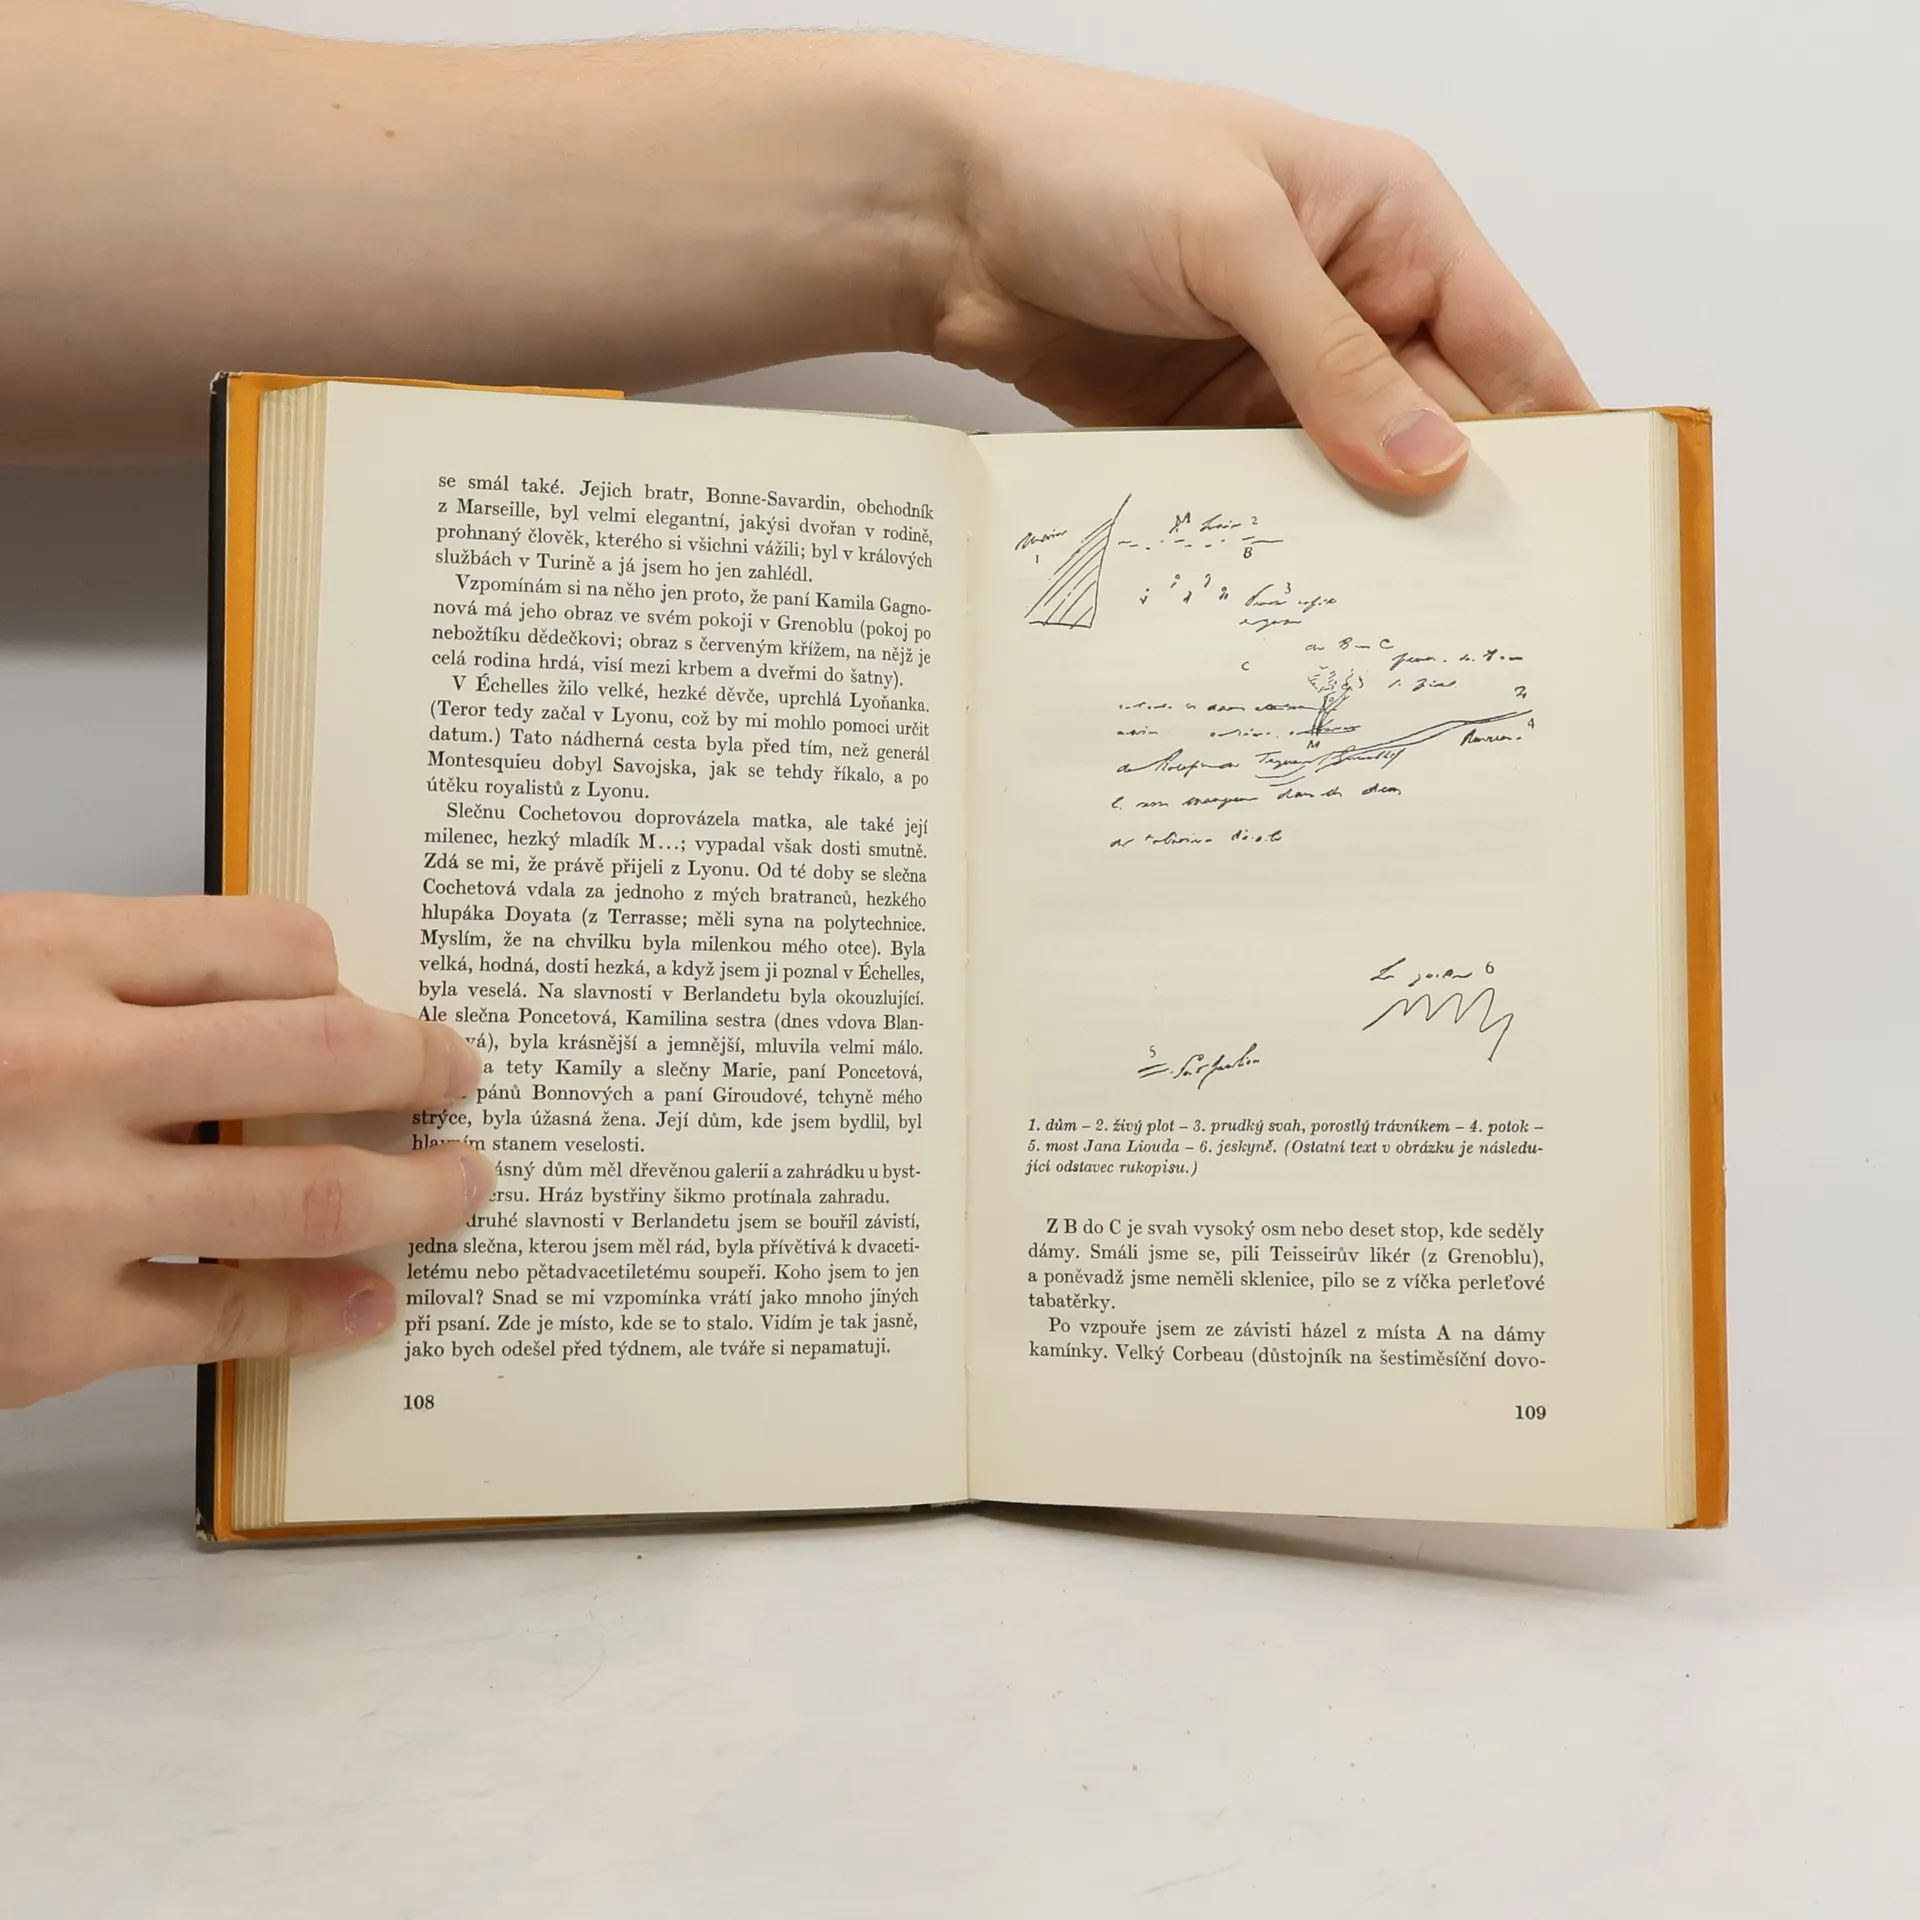 se smál také. Jejich bratr, Bonne-Savardin, obchodník
z Marseille, byl velmi elegantní, jakýsi dvořan v rodině,
prohnaný člověk, kterého si všichni vážili; byl v králových
službách v Turině a já jsem ho jen zahlédl.
Vzpomínám si na něho jen proto, že paní Kamila Gagno-
nová má jeho obraz ve svém pokoji v Grenoblu (pokoj po
nebožtíku dědečkovi; obraz s červeným křížem, na nějž je
celá rodina hrdá, visí mezi krbem a dveřmi do šatny).
V Échelles žilo velké, hezké děvče, uprchlá Lyoňanka.
(Teror tedy začal v Lyonu, což by mi mohlo pomoci určit
datum.) Tato nádherná cesta byla před tím, než generál
Montesquieu dobyl Savojska, jak se tehdy říkalo, a po
útěku royalistů z Lyonu.
Slečnu Cochetovou doprovázela matka, ale také její
milenec, hezký mladík M...; vypadal však dosti smutně.
Zdá se mi, že právě přijeli z Lyonu. Od té doby se slečna
Cochetová vdala za jednoho z mých bratranců, hezkého
hlupáka Doyata (z Terrasse; měli syna na polytechnice.
Myslím, že na chvilku byla milenkou mého otce). Byla
velká, hodná, dosti hezká, a když jsem ji poznal v Échelles,
byla veselá. Na slavnosti v Berlandetu byla okouzlující.
Ale slečna Poncetová, Kamilina sestra (dnes vdova Blan-
vá), byla krásnější a jemnější, mluvila velmi málo.
a tety Kamily a slečny Marie, paní Poncetová,
pánů Bonnových a paní Giroudové, tchyně mého
strýce, byla úžasná žena. Její dům, kde jsem bydlil, byl
hlavním stanem veselosti.
ásný dům měl dřevěnou galerii a zahrádku u byst-
ersu. Hráz bystřiny šikmo protínala zahradu.
druhé slavnosti v Berlandetu jsem se bouřil závistí,
jedna slečna, kterou jsem měl rád, byla přívětivá k dvaceti-
letému nebo pětadvacetiletému soupeři. Koho jsem to jen
miloval? Snad se mi vzpomínka vrátí jako mnoho jiných
při psaní. Zde je místo, kde se to stalo. Vidím je tak jasně,
jako bych odešel před týdnem, ale tváře si nepamatuji.
108
1
2
B
3
C
B C
4
M
6
5
1. dům – 2. živý plot – 3. prudký svah, porostlý trávníkem – 4. potok –
5. most Jana Liouda – 6. jeskyně. (Ostatní text v obrázku je následu-
jící odstavec rukopisu.)
Z B do C je svah vysoký osm nebo deset stop, kde seděly
dámy. Smáli jsme se, pili Teisseirův likér (z Grenoblu),
a poněvadž jsme neměli sklenice, pilo se z víčka perleťové
tabatěrky.
Po vzpouře jsem ze závisti házel z místa A na dámy
kamínky. Velký Corbeau (důstojník na šestiměsíční dovo-
109